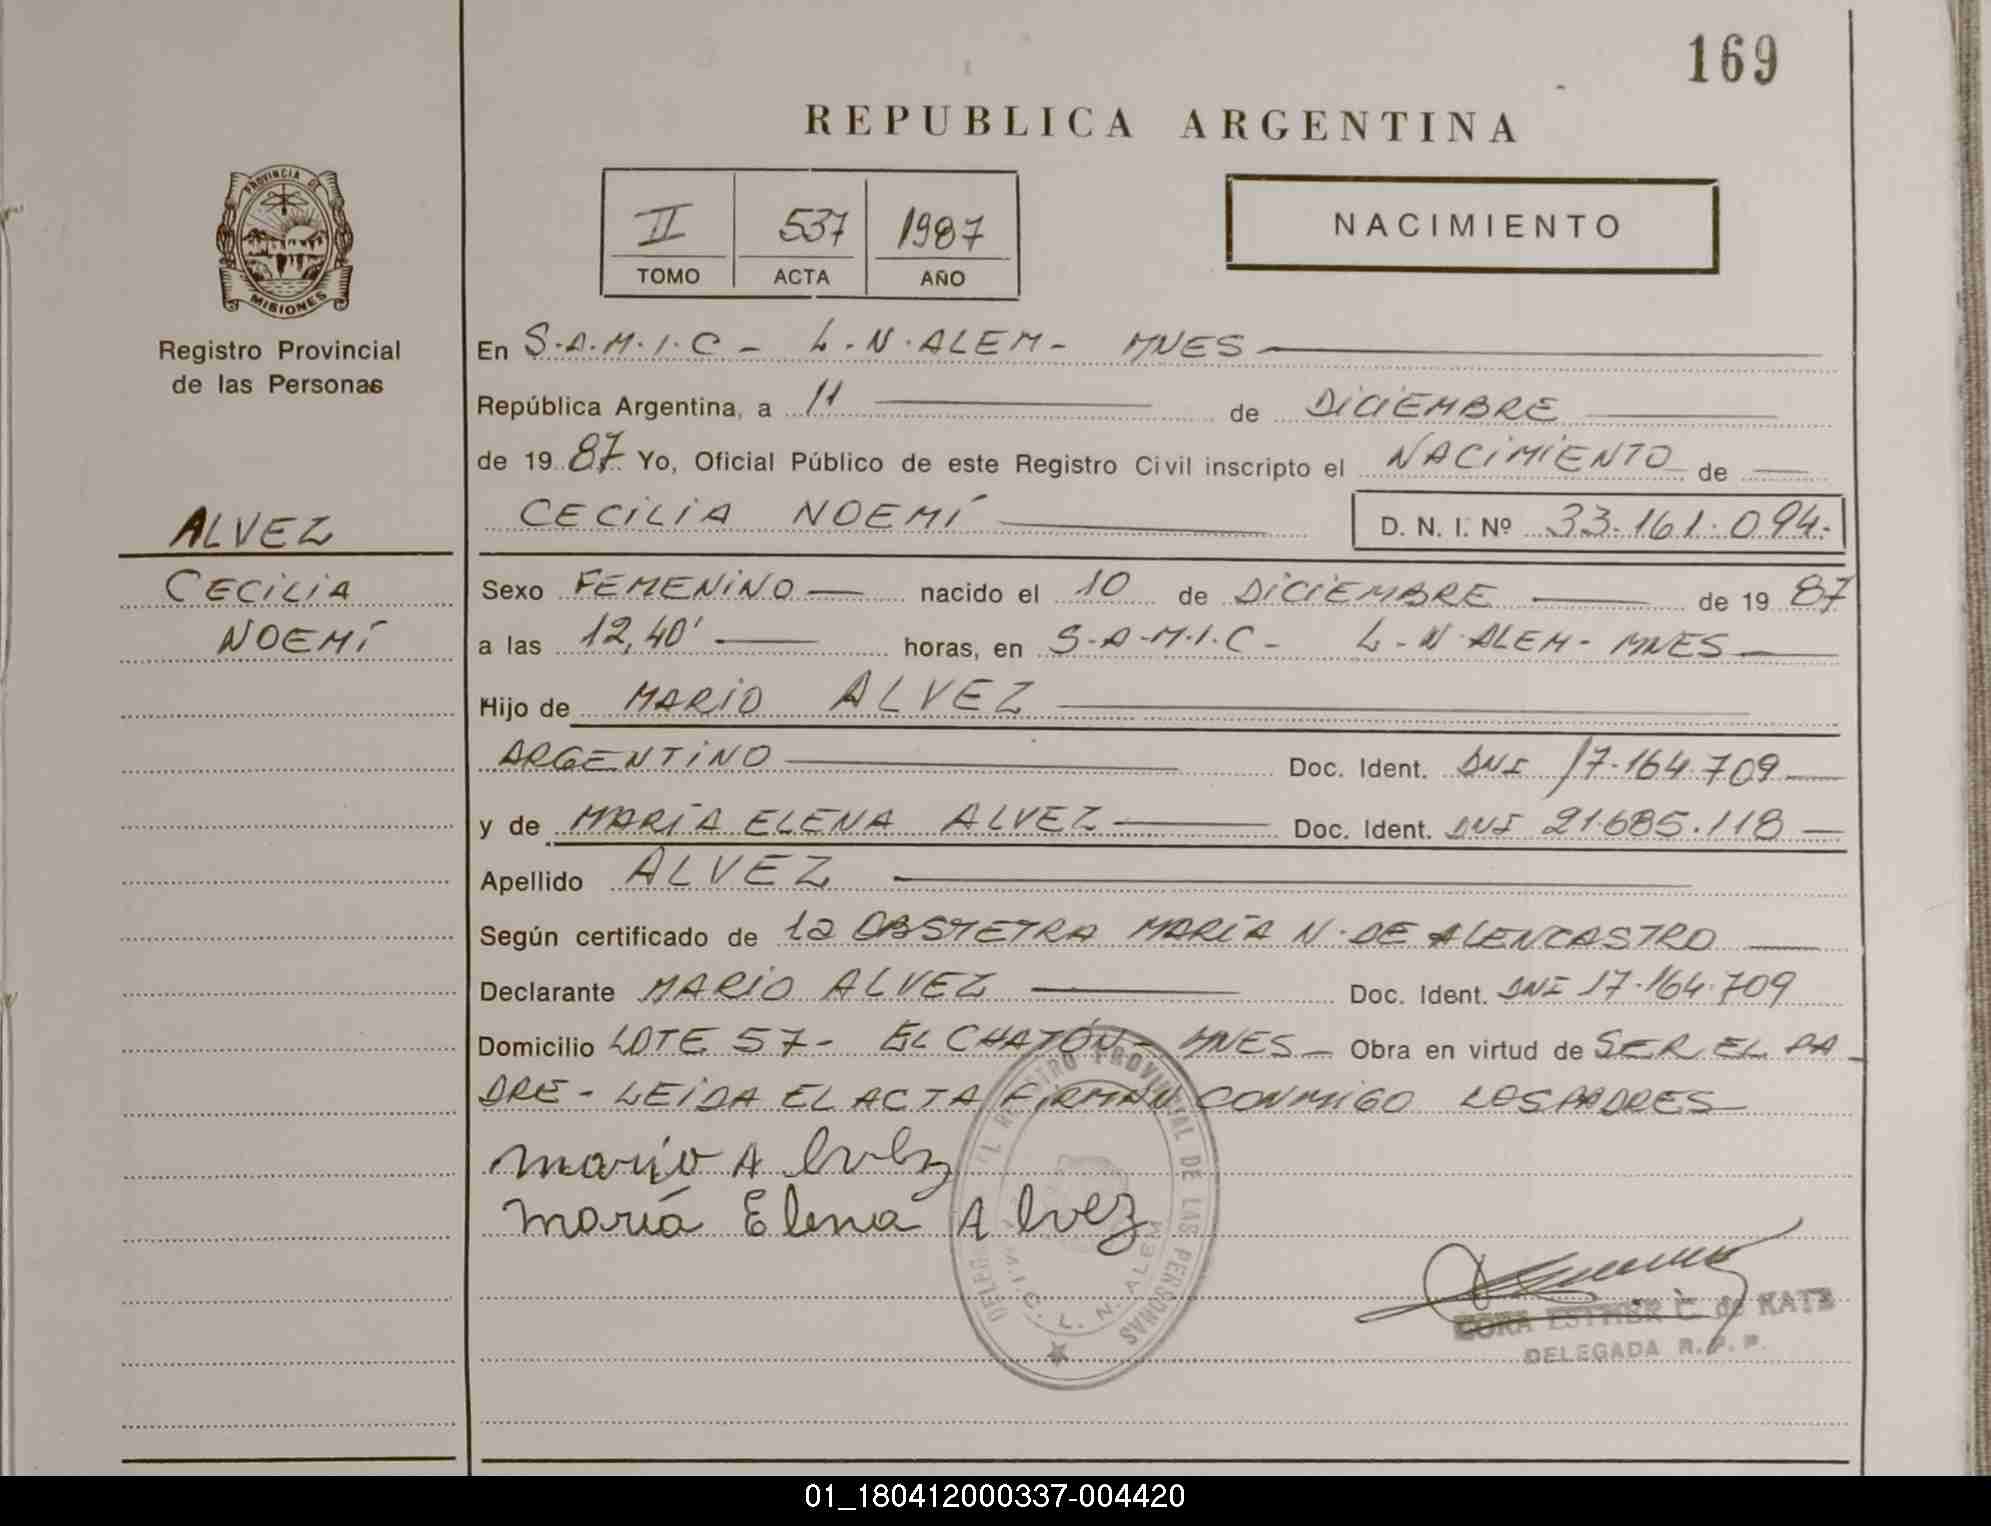 169
REPUBLICA ARGENTINA
PROVINCIA DE
MISIONES
II 537 1987
TOMO ACTA AÑO
NACIMIENTO
Registro Provincial
de las Personas
En S.A.M.I.C - L.N.ALEM - MNES
República Argentina, a 11 de DICIEMBRE
de 1987 Yo, Oficial Público de este Registro Civil inscripto el NACIMIENTO de
CECILIA NOEMÍ D. N. I. Nº 33.161.094.-
ALVEZ
CECILIA
NOEMÍ
Sexo FEMENINO nacido el 10 de DICIEMBRE de 1987
a las 12,40' horas, en S.A.M.I.C - L.N.ALEM - MNES
Hijo de MARIO ALVEZ
ARGENTINO Doc. Ident. DNI 17.164.709
y de MARÍA ELENA ALVEZ Doc. Ident. DNI 21.685.118
Apellido ALVEZ
Según certificado de la OBSTETRA MARÍA N. DE ALENCASTRO
Declarante MARIO ALVEZ Doc. Ident. DNI 17.164.709
Domicilio LOTE 57 - EL CHATÓN - MNES - Obra en virtud de SER EL PA-
DRE - LEIDA EL ACTA FIRMAN CONMIGO LOS PADRES
mario Alvez
María Elena Alvez
REGISTRO PROVINCIAL DE LAS PERSONAS
L. N. ALEM
ESTHER C. de KATZ
DELEGADA R.P.P.
01_180412000337-004420